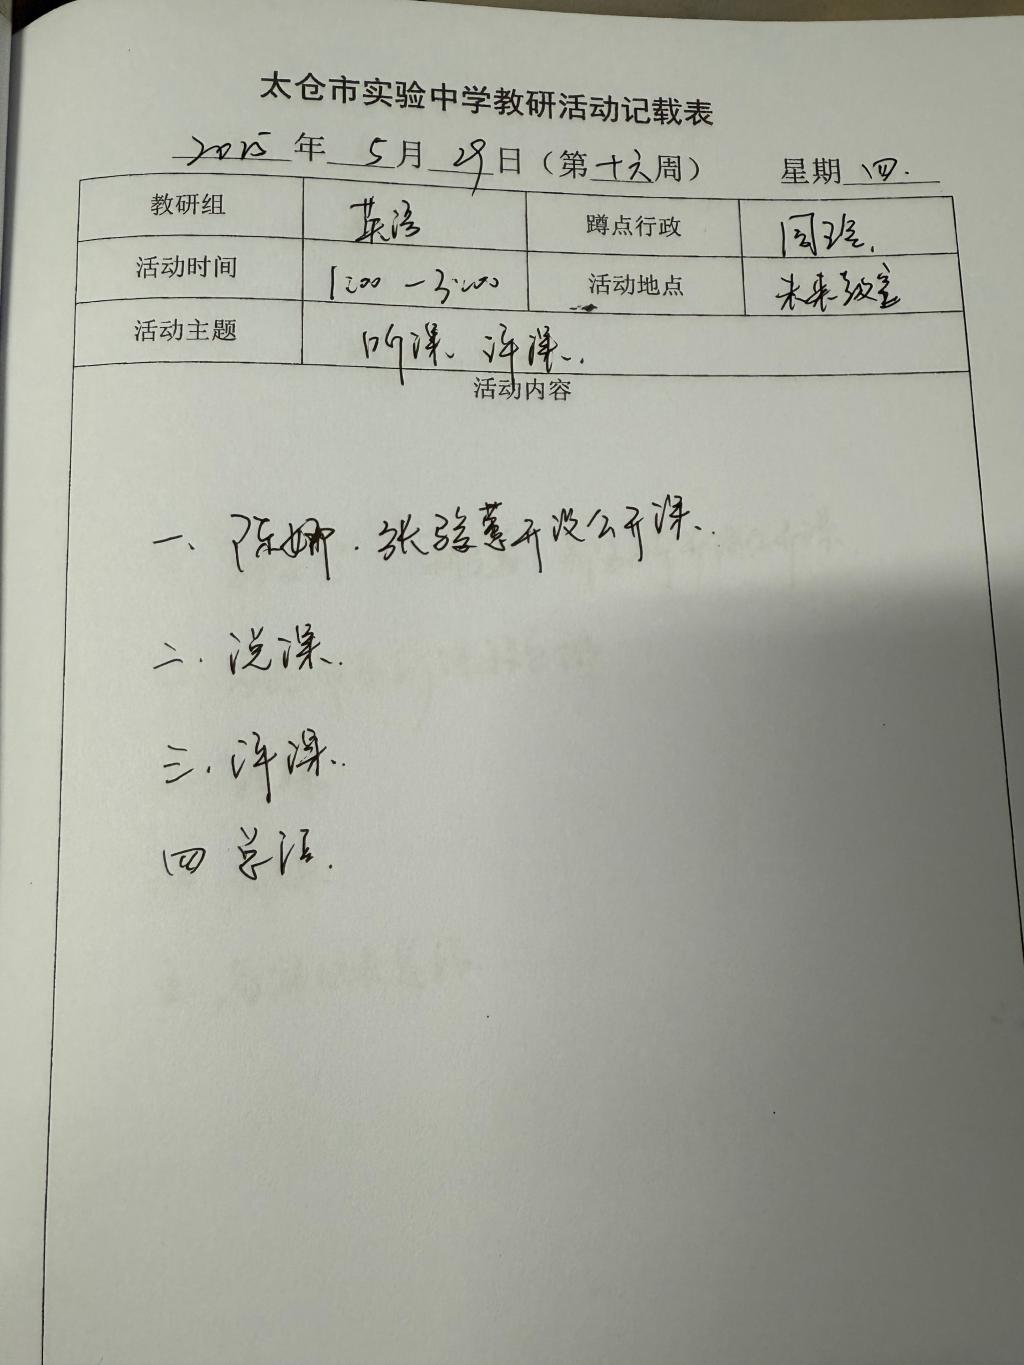 太仓市实验中学教研活动记载表
2025年5月29日（第十六周） 星期四.
教研组 英语 蹲点行政
活动时间 1:00-3:00 活动地点 未来教室
活动主题 听课、评课.
活动内容
一、陈娜、张骏蕙开设公开课.
二、说课.
三、评课.
四 总结.